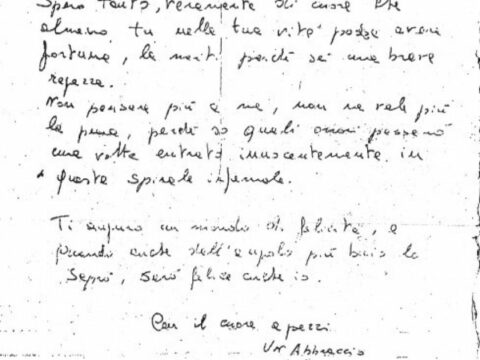 Spero tanto, veramente di cuore che
almeno tu nella tua vita possa avere
fortuna, la meriti perché sei una brava
ragazza.
Non pensare più a me, non ne vale più
la pena, perché so quali orrori passerò
una volta entrato innocentemente in
questa spirale infernale.
Ti auguro un mondo di felicità, e
quando anche dell'angolo più buio lo
saprò, sarò felice anche io.
Con il cuore a pezzi.
Un Abbraccio